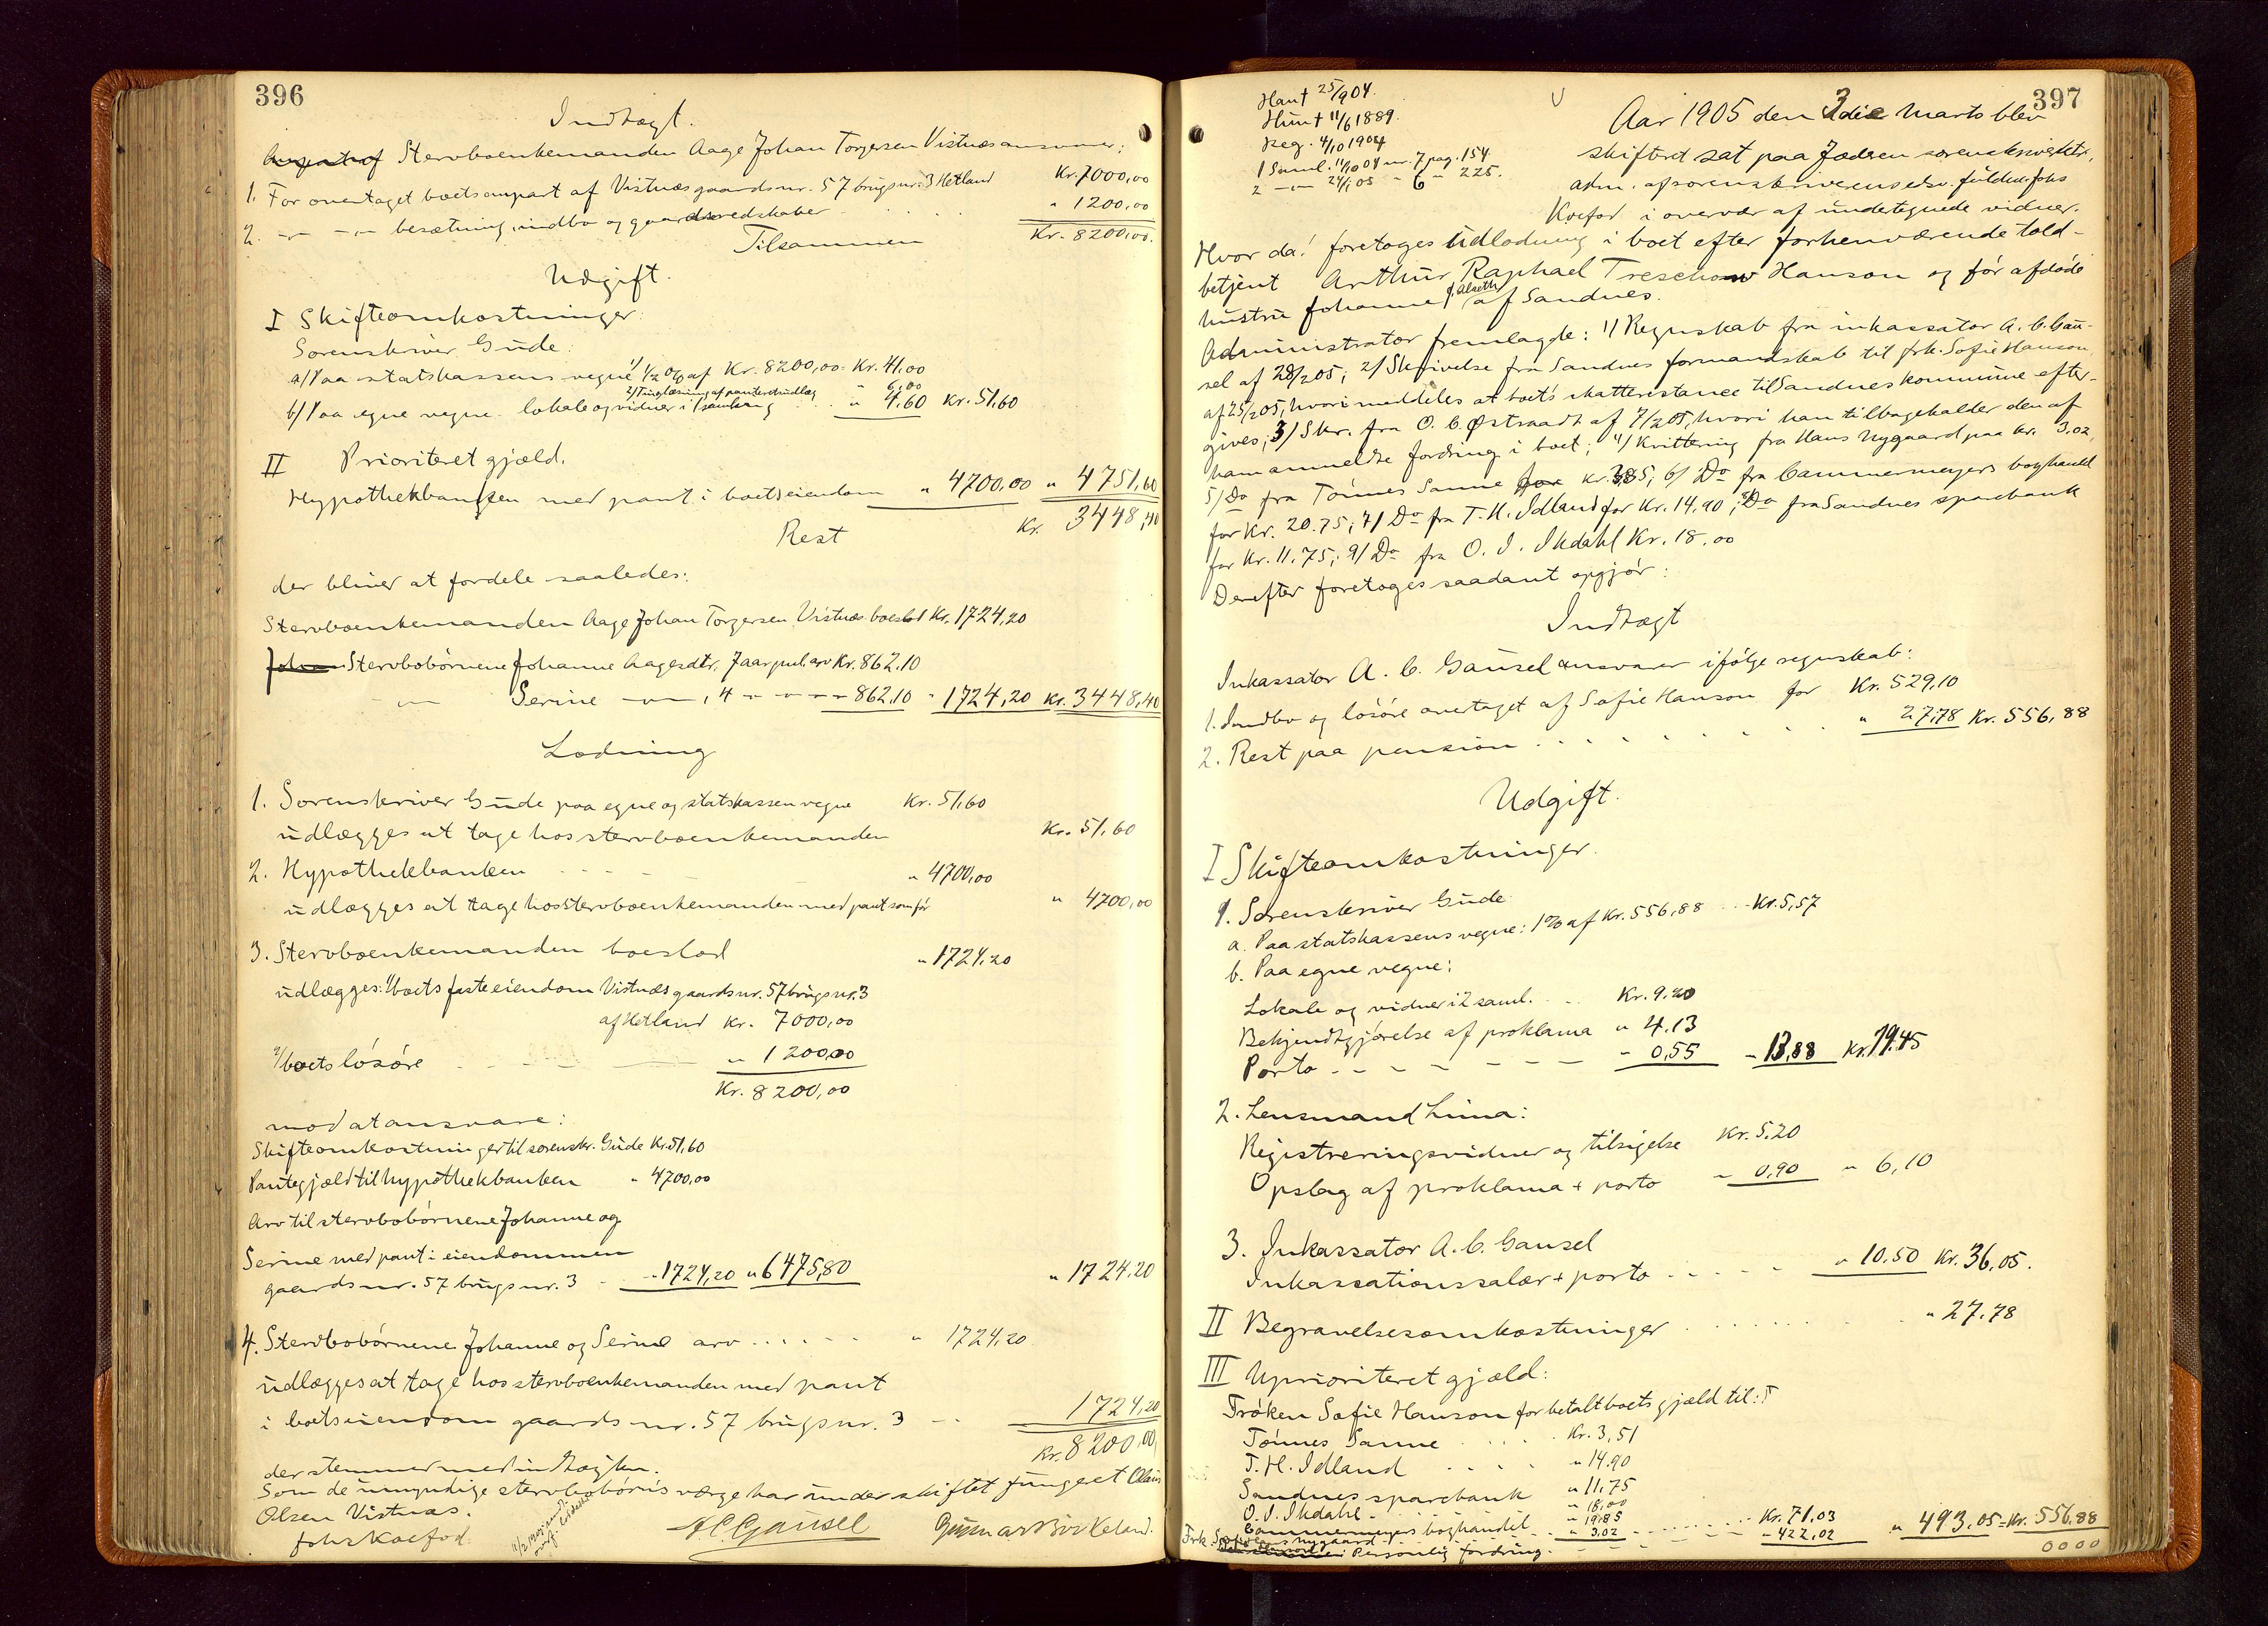 396
Indtægt.
Stervboenkemanden Aage Johan Torgersen Vistnæs ansvarer:
1. For overtaget boets anpart af Vistnæs gaardsnr. 57 brugsnr. 3 Hetland Kr. 7000,00
2. -"- -"- besætning, indbo og gaardsredskaber . . . . " 1200,00
Tilsammen Kr. 8200,00.
Udgift.
I Skifteomkostninger:
Sorenskriver Gude:
a/ Paa statskassens vegne 1/ 1/2 % af Kr. 8200,00 = Kr. 41,00
2/ Tinglæsning af panteretsudlæg " 6,00
b/ Paa egne vegne lokale og vidner i 1 samling . . " 4,60 Kr. 51,60
II Prioriteret gjæld.
Hypothekbanken med pant i boets eiendom " 4700,00 " 4751,60
Rest Kr. 3448,40
der bliver at fordele saaledes:
Stervboenkemanden Aage Johan Torgersen Vistnæs boeslod Kr. 1724,20
Stervbobørnene Johanne Aagesdtr, 7 aar gml. arv Kr. 862.10
-"- Serine -"-, 4 - " - " - - 862,10 " 1724,20 Kr. 3448,40
Lodning
1. Sorenskriver Gude paa egne og statskassen vegne Kr. 51,60
udlægges at tage hos stervboenkemanden Kr. 51,60
2. Hypothekbanken . . - - " 4700,00
udlægges at tage hos stervboenkemanden med pant som før " 4700,00
3. Stervboenkemanden boeslod " 1724,20
udlægges: 1/ boets faste eiendom Vistnæs gaardsnr. 57 brugsnr. 3
af Hetland Kr. 7000,00
2/ boets løsøre " 1200,00
Kr. 8200,00
mod at ansvare:
Skifteomkostninger til sorenskr. Gude Kr. 51,60
Pantegjæld til hypothekbanken " 4700,00
Arv til stervbobørnene Johanne og
Serine med pant i eiendommen
gaardsnr. 57 brugsnr. 3 - " 1724,20 " 6475,80 " 1724.20
4. Stervbobørnene Johanne og Serine arv . . . . . " 1724,20
udlægges at tage hos stervboenkemanden med pant
i boets eiendom gaardsnr. 57 brugsnr. 3 - - 1724,20
Kr. 8200,00
der stemmer med indtægten.
Som de umyndige stervbobørns værge har under skiftet fungeret Olaus
Olsen Vistnæs.
Johs Koefod A C Gausel Gunnar Birkeland.
397
Hans † 25/9 04.
Hun † 11/6 1889.
Reg. 4/10 1904
1 Saml. 11/10 04 nr. 7 pag. 154
2 -"- 24/1 05 - 6 - 225.
Aar 1905 den 3die Marts blev
skifteret sat paa Jædren sorenskriverktr,
adm. af sorenskriverens edsv. fuldm. Johs
Koefod i overvær af undertegnede vidner.
Hvor da: foretoges udlodning i boet efter forhenværende told-
betjent Arthur Raphael Treschow Hanson og før afdøde
hustru Johanne f. Alseth af Sandnes.
Administrator fremlagde: 1/ Regnskab fra inkassator A. C. Gau-
sel af 28/2 05; 2/ Skrivelse fra Sandnes formandskab til frk. Sofie Hanson
af 25/2 05, hvori meddeles at boets skatterestance til Sandnes kommune efter-
gives; 3/ Skr. fra O. C. Østraadt af 7/2 05, hvori han tilbageholder den af
ham anmeldte fordring i boet; 4/ Kvittering fra Hans Nygaard paa kr. 3.02,
5/ Do fra Tønnes Sanne for kr. 3,85; 6/ Do fra Cammermeyers boghandel
for Kr. 20.75; 7/ Do fra T. H. Idland for Kr. 14,90; 8/ Do fra Sandnes sparebank
for Kr. 11.75; 9/ Do fra O. I. Ikdahl Kr. 18.00
Derefter foretoges saadant opgjør:
Indtægt
Inkassator A. C. Gausel ansvarer ifølge regnskab:
1. Indbo og løsøre overtaget af Sofie Hanson for Kr. 529,10
2. Rest paa pension . . . . . . . . . " 27,78 Kr. 556,88
Udgift.
I Skifteomkostninger.
1. Sorenskriver Gude
a. Paa statskassens vegne: 1% af Kr. 556,88 . . - Kr. 5,57
b. Paa egne vegne:
Lokale og vidner i 2 saml. . . Kr. 9.20
Bekjendtgjørelse af proklama " 4.13
Porto - - - - - - - - " 0,55 - 13,88 Kr. 19.45
2. Lensmand Lima:
Registreringsvidner og tilsigelse Kr. 5.20
Opslag af proklama + porto " 0,90 " 6,10
3. Inkassator A. C. Gausel
Inkassationssalær + porto . . . . . " 10.50 Kr. 36,05.
II Begravelsesomkostninger . . . . . . . " 27.78
III Uprioriteret gjæld:
Frøken Sofie Hanson for betalt boets gjæld til:
Tønnes Sanne . . . . Kr. 3,51
T. H. Idland . . . . " 14.90
Sandnes sparebank " 11,75
O. I. Ikdahl - . . " 18,00
Cammermeyers boghandel . . " 19,85 . . . . Kr. 71.03
Hans Nygaard . . " 3,02
Frk. Sofie Hanson Personlig fordring . - - - " 422,02 " 493,05 = Kr. 556,88
0000